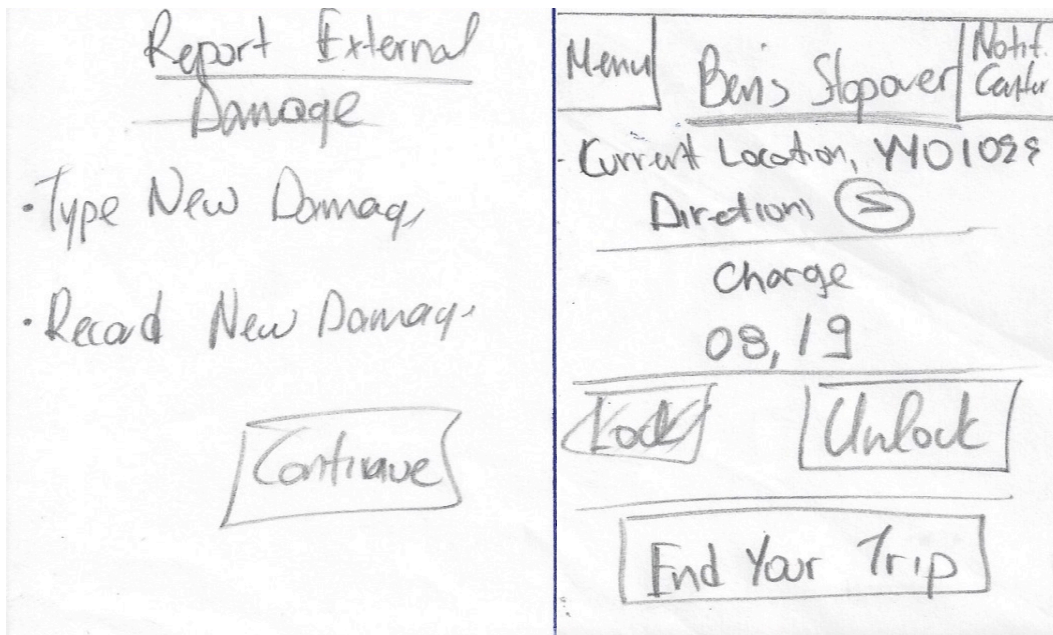 Report External
Damage
· Type New Damag,
· Record New Damag,
Continue
Menu
Ben's Stopover
Notif.
Center
- Current Location, YYO1099
Directions
Charge
08,19
Lock
Unlock
End Your Trip